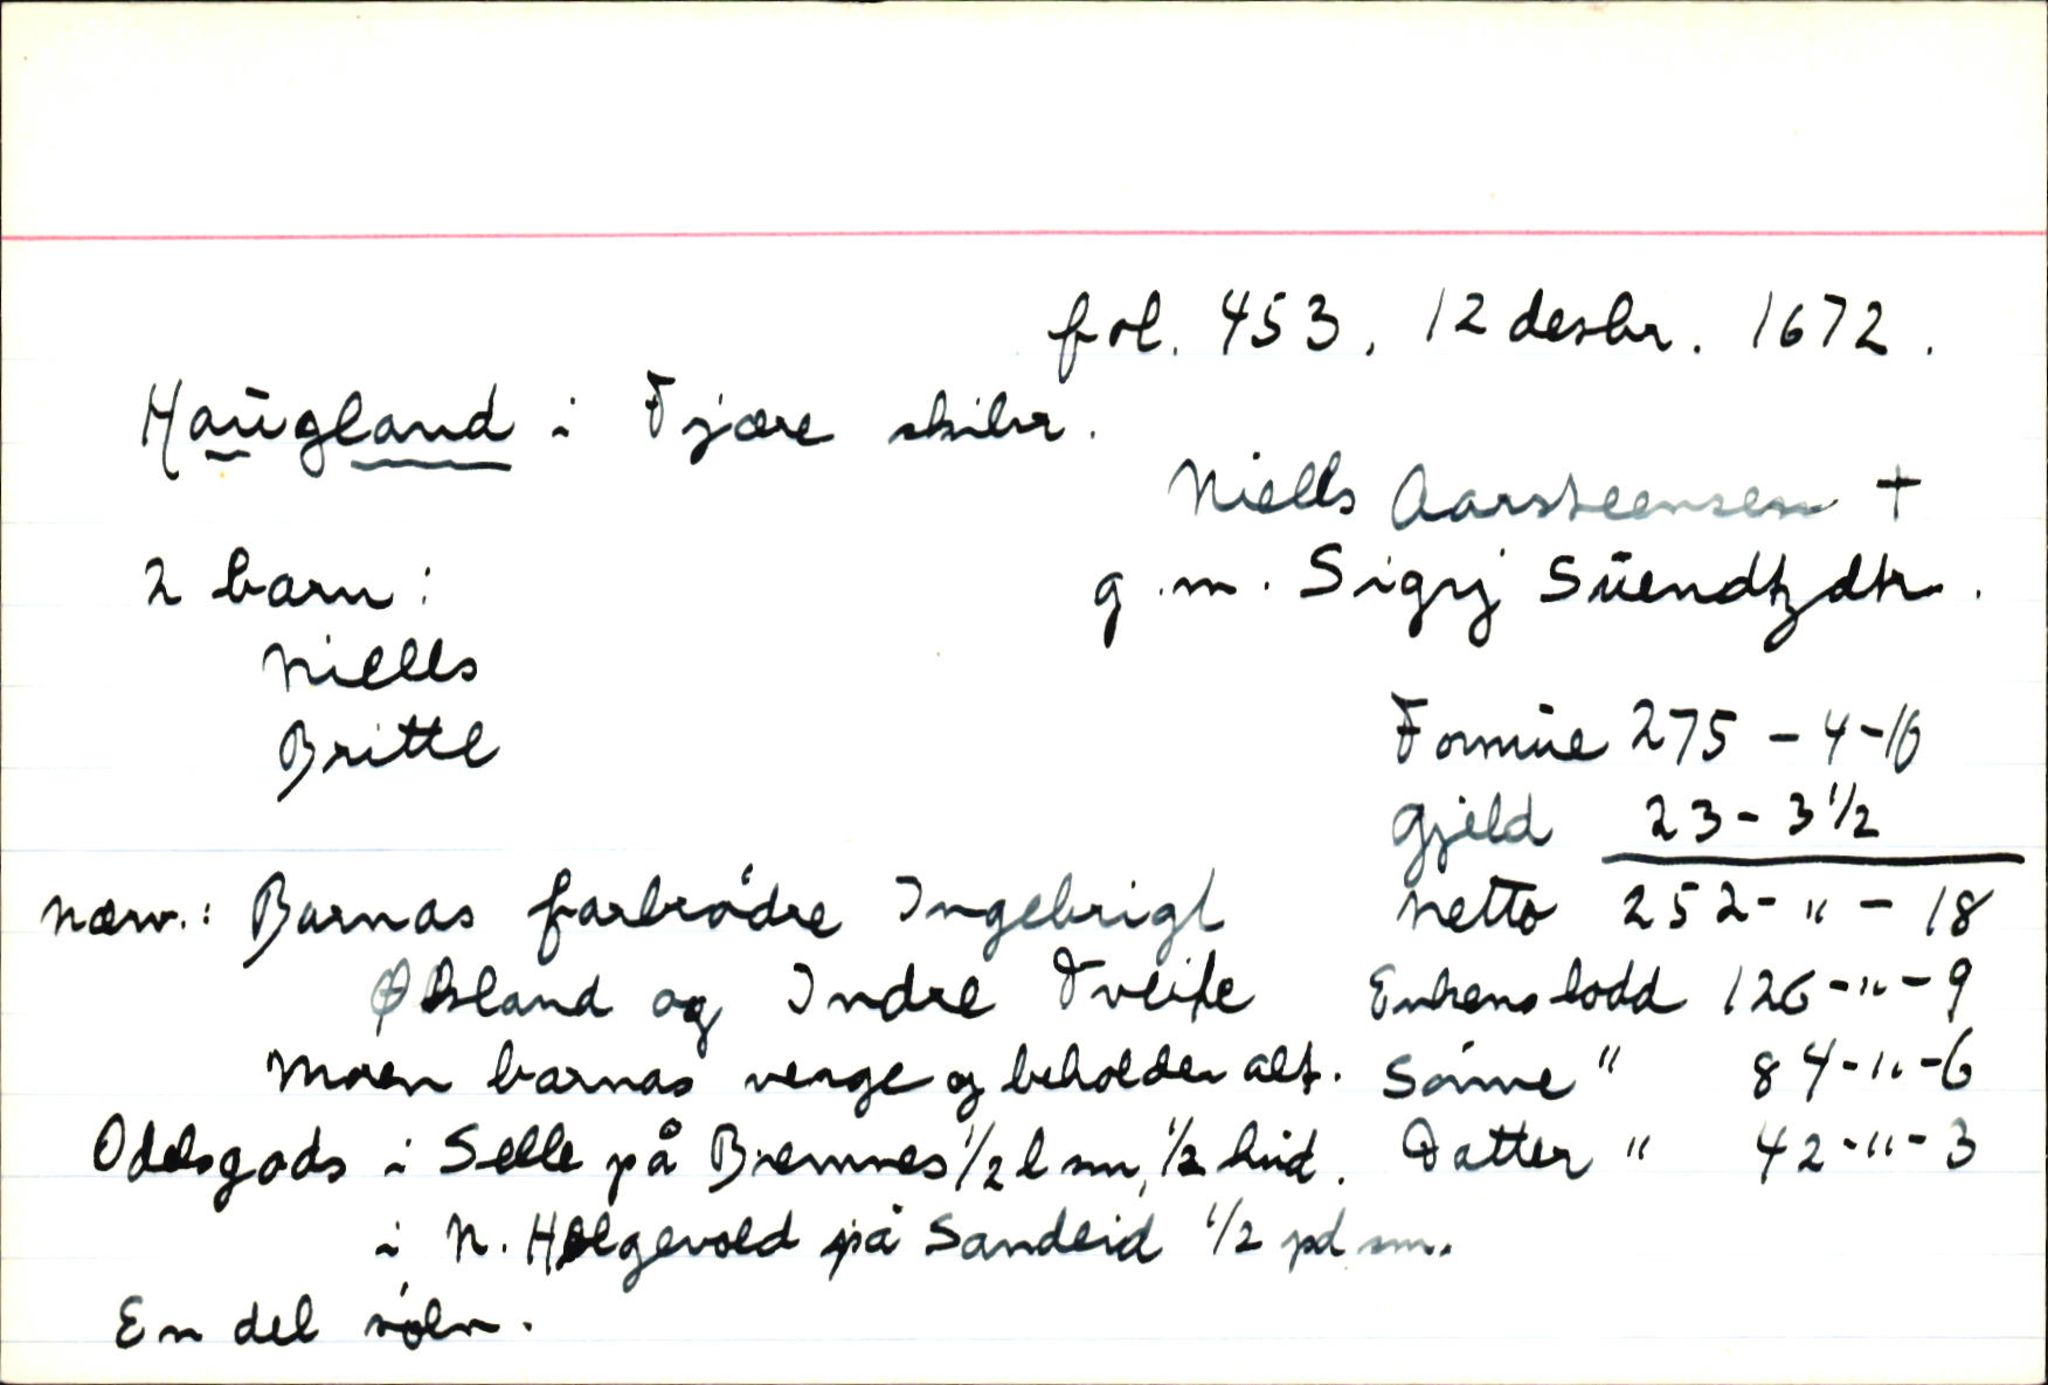 fol. 453, 12 desbr. 1672.
Haugland i Fjære skibr.
Niells Aarsteensen +
2 barn:
g.m. Sigrj Suendtzdtr.
Niells
Britte
Formue 275 - 4 - 16
Gjeld 23 - 3 1/2
Nærv.: Barnas farbrødre Ingebrigt
Netto 252 - " - 18
Ølsland og Indre Tveite
Enkens lodd 126 - " - 9
Moren barnas verge og beholder alt.
Sønne " 84 - " - 6
Odelsgods i Selle på Bremnes 1/2 l sm, 1/2 hud.
Datter " 42 - " - 3
i N. Helgevold på Sandeid 1/2 pd sm.
En del sølv.